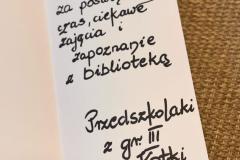 za poświę
czas, ciekawe
zajęcia i
zapoznanie
z biblioteką
Przedszkolaki
z gr. III
Kotki